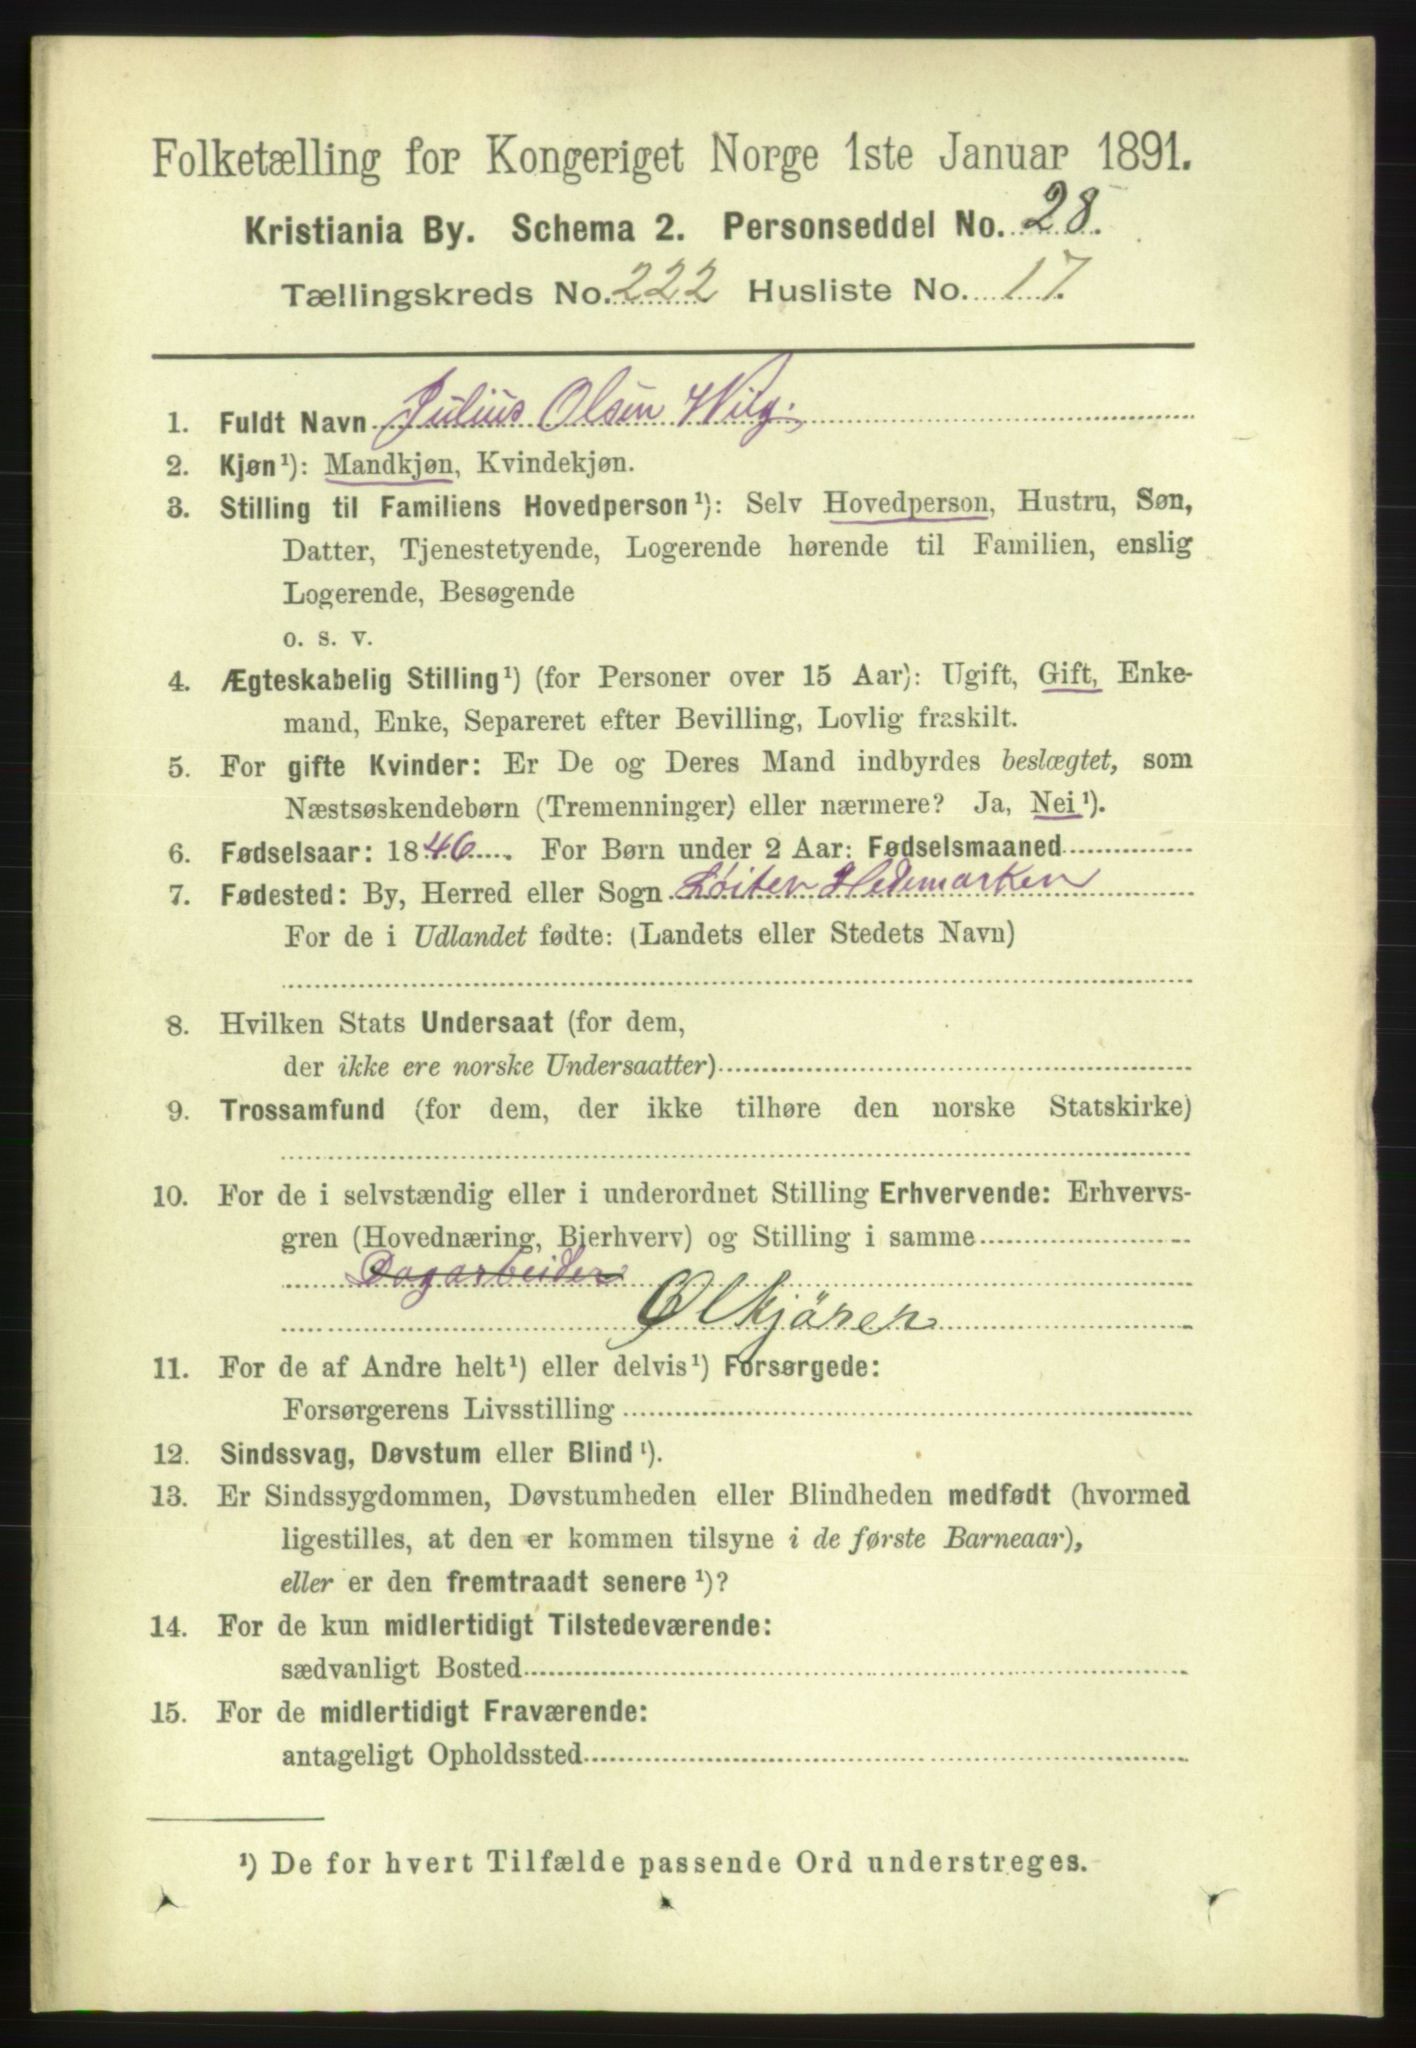 Folketælling for Kongeriget Norge 1ste Januar 1891.
Kristiania By. Schema 2. Personseddel No. 28.
Tællingskreds No. 222 Husliste No. 17.
1. Fuldt Navn Julius Olsen Wilg.
2. Kjøn¹): Mandkjøn, Kvindekjøn.
3. Stilling til Familiens Hovedperson¹): Selv Hovedperson, Hustru, Søn,
Datter, Tjenestetyende, Logerende hørende til Familien, enslig
Logerende, Besøgende
o. s. v.
4. Ægteskabelig Stilling¹) (for Personer over 15 Aar): Ugift, Gift, Enke-
mand, Enke, Separeret efter Bevilling, Lovlig fraskilt.
5. For gifte Kvinder: Er De og Deres Mand indbyrdes beslægtet, som
Næstsøskendebørn (Tremenninger) eller nærmere? Ja, Nei¹).
6. Fødselsaar: 1846. For Børn under 2 Aar: Fødselsmaaned
7. Fødested: By, Herred eller Sogn Løiten Hedemarken
For de i Udlandet fødte: (Landets eller Stedets Navn)
8. Hvilken Stats Undersaat (for dem,
der ikke ere norske Undersaatter)
9. Trossamfund (for dem, der ikke tilhøre den norske Statskirke)
10. For de i selvstændig eller i underordnet Stilling Erhvervende: Erhvervs-
gren (Hovednæring, Bierhverv) og Stilling i samme
Dagarbeider
Ølkjörer
11. For de af Andre helt¹) eller delvis¹) Forsørgede:
Forsørgerens Livsstilling
12. Sindssvag, Døvstum eller Blind¹).
13. Er Sindssygdommen, Døvstumheden eller Blindheden medfødt (hvormed
ligestilles, at den er kommen tilsyne i de første Barneaar),
eller er den fremtraadt senere¹)?
14. For de kun midlertidigt Tilstedeværende:
sædvanligt Bosted
15. For de midlertidigt Fraværende:
antageligt Opholdssted
¹) De for hvert Tilfælde passende Ord understreges.